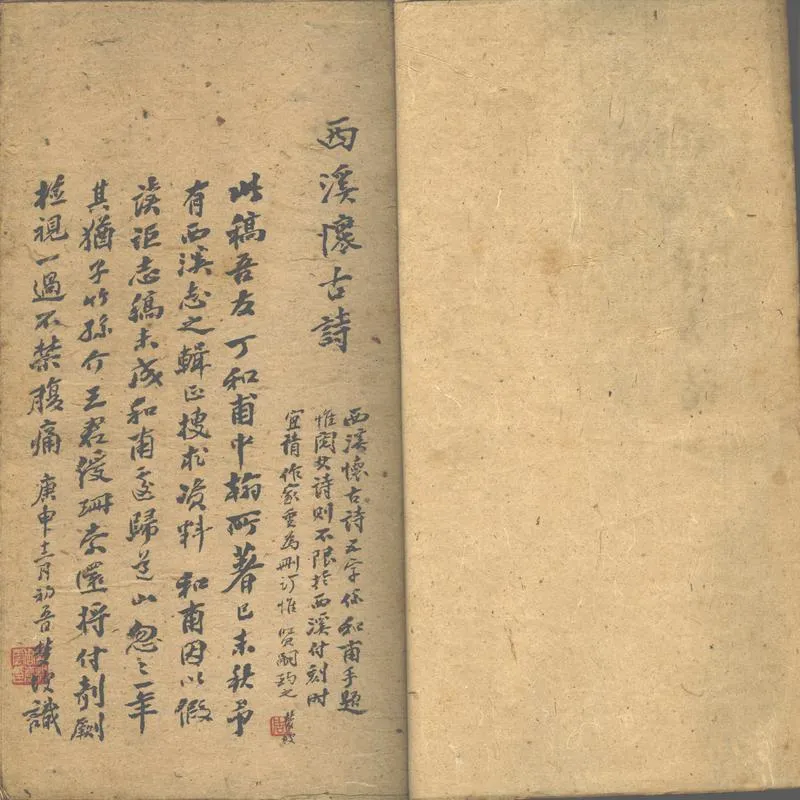 西溪懷古詩
西溪懷古詩五字係和甫手題
惟詩則不限於西溪付刻時
宜請作家重為刪訂惟 賢嗣酌之 夢坡
此稿吾友丁和甫中翰所著己未秋弟
有西溪志之輯正搜求資料 和甫因以假
讀詎志稿未成和甫遽歸道山忽〻一年
其猶子竹孫介王君綬珊索還將付剞劂
檢視一過不禁腹痛 庚申十二月初吉夢坡識